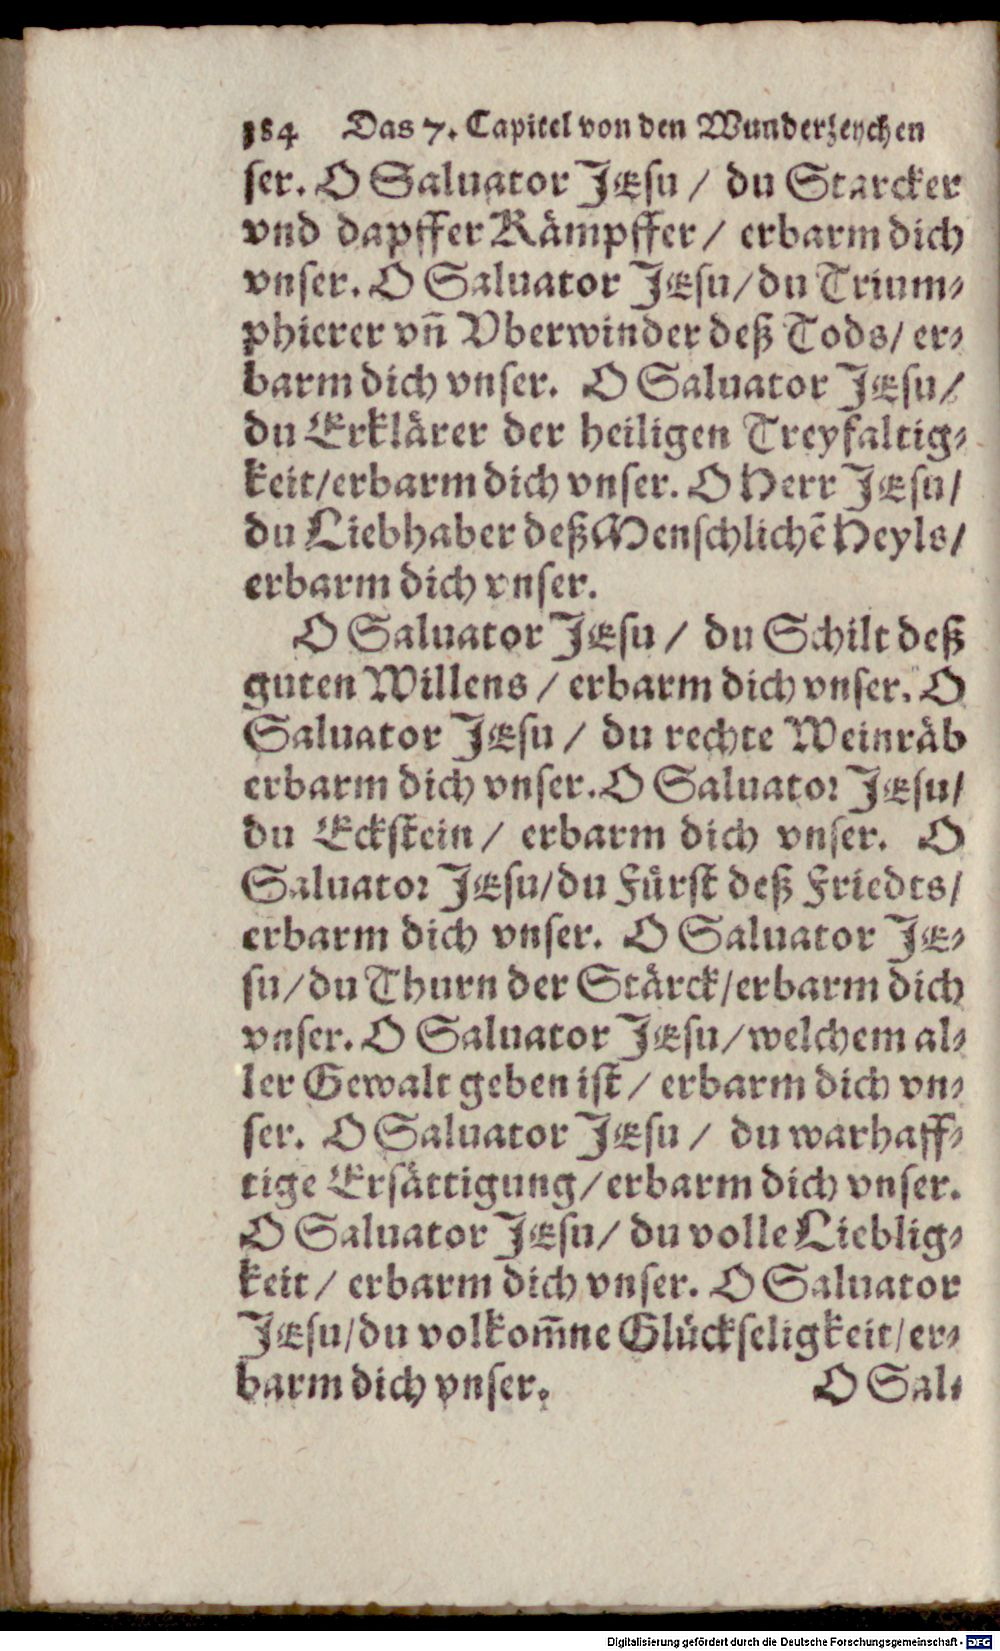 184 Das 7. Capitel von den Wunderzeychen
ser. O Saluator JEsu / du Starcker
vnd dapffer Kämpffer / erbarm dich
vnser. O Saluator JEsu / du Trium-
phierer vn̄ Vberwinder deß Tods / er-
barm dich vnser. O Saluator JEsu /
du Erklärer der heiligen Treyfaltig-
keit / erbarm dich vnser. O Herr JEsu /
du Liebhaber deß Menschlichẽ Heyls /
erbarm dich vnser.
O Saluator JEsu / du Schilt deß
guten Willens / erbarm dich vnser. O
Saluator JEsu / du rechte Weinräb
erbarm dich vnser. O Saluator JEsu /
du Eckstein / erbarm dich vnser. O
Saluator JEsu / du Fürst deß Friedts /
erbarm dich vnser. O Saluator JE-
su / du Thurn der Stärck / erbarm dich
vnser. O Saluator JEsu / welchem al-
ler Gewalt geben ist / erbarm dich vn-
ser. O Saluator JEsu / du warhaff-
tige Ersättigung / erbarm dich vnser.
O Saluator JEsu / du volle Lieblig-
keit / erbarm dich vnser. O Saluator
JEsu / du volkom̄ne Glückseligkeit / er-
barm dich vnser. O Sal-
Digitalisierung gefördert durch die Deutsche Forschungsgemeinschaft - DFG